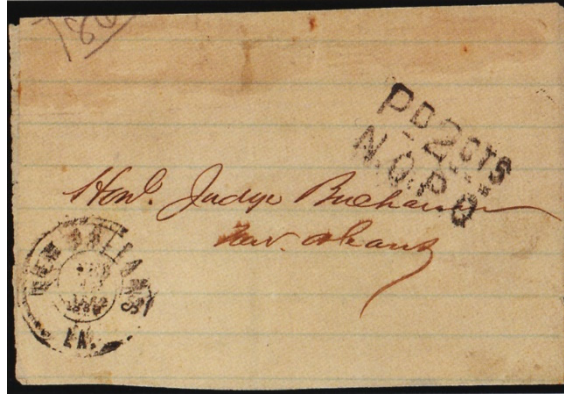 186
PD 2 CTS
N.O.P.O
Honl. Judge Buchanan
New. Orleans
NEW ORLEANS
LA.